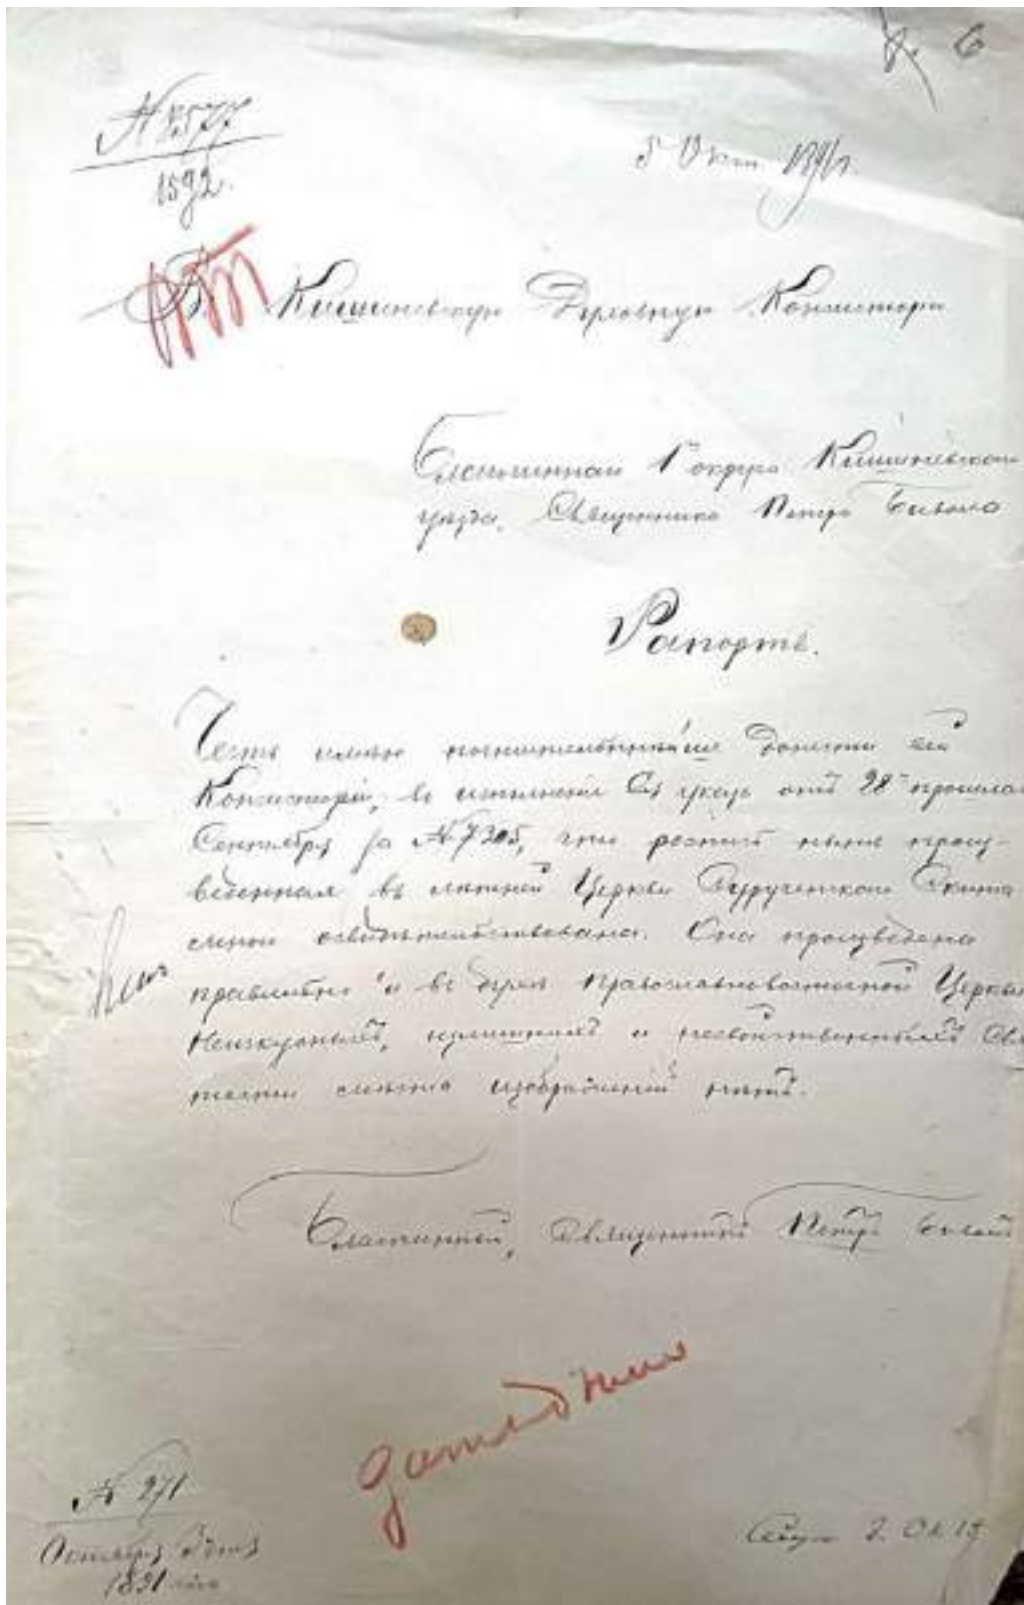 6
№ 8577
1592.
5 Окт. 1891 г.
Въ Кишиневскую Духовную Консисторiю
Благочиннаго 1 округа Кишиневскаго
уѣзда, Священника Петра
Рапортъ.
Честь имѣю почтительнѣйше донести ей
Консисторiи, во исполненiе Ея указу отъ 28 прошлаго
Сентября за № 7305, что роспись нынѣ произ-
веденная въ лѣтней Церкви Сурученскаго Скита
мною освидѣтельствована. Она произведена
правильно и въ духѣ православновосточной Церкви.
Неискусныхъ, излишнихъ и несвойственныхъ свя-
тости мѣста изображенiй нѣтъ.
Благочинный, Священникъ Петръ
№ 271
Октября 3 дня
1891 года